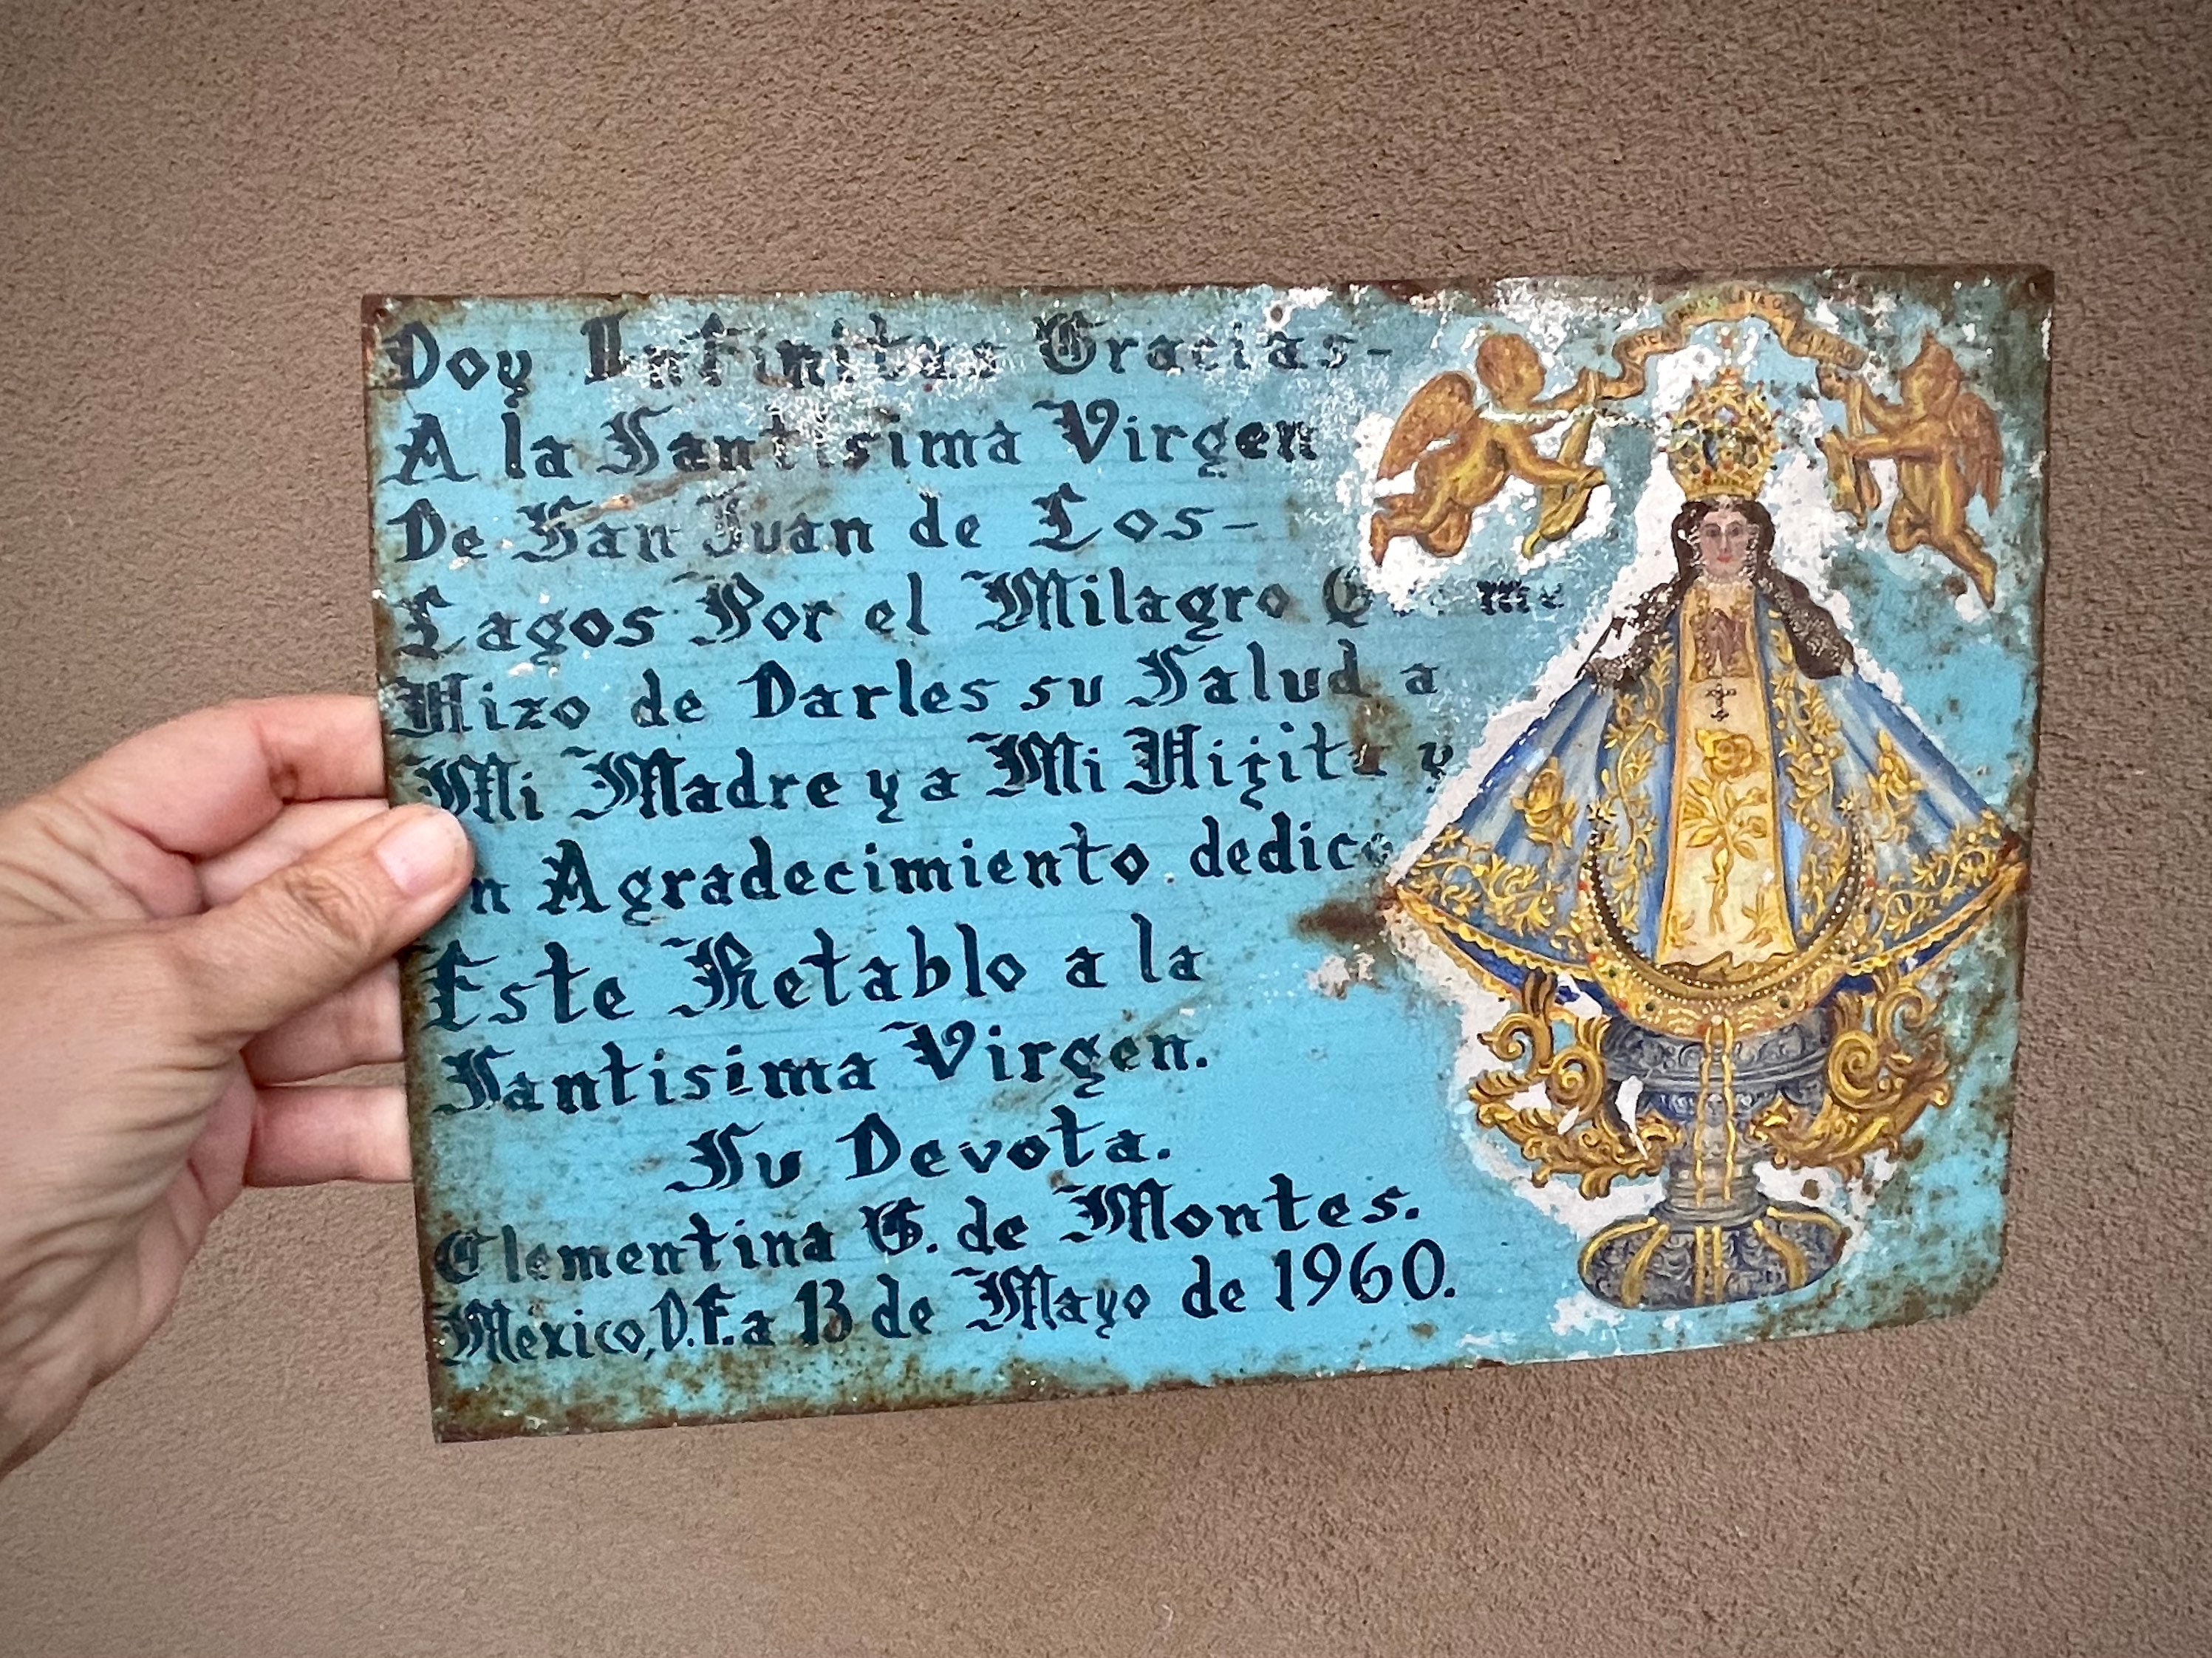 Doy Infinitas Gracias-
A la Santisima Virgen
De San Juan de Los-
Lagos Por el Milagro me
Hizo de Darles su Salud a
Mi Madre y a Mi Hijita y
Agradecimiento dedico
Este Retablo a la
Santisima Virgen.
Su Devota.
Clementina G. de Montes.
México, D.F. a 13 de Mayo de 1960.